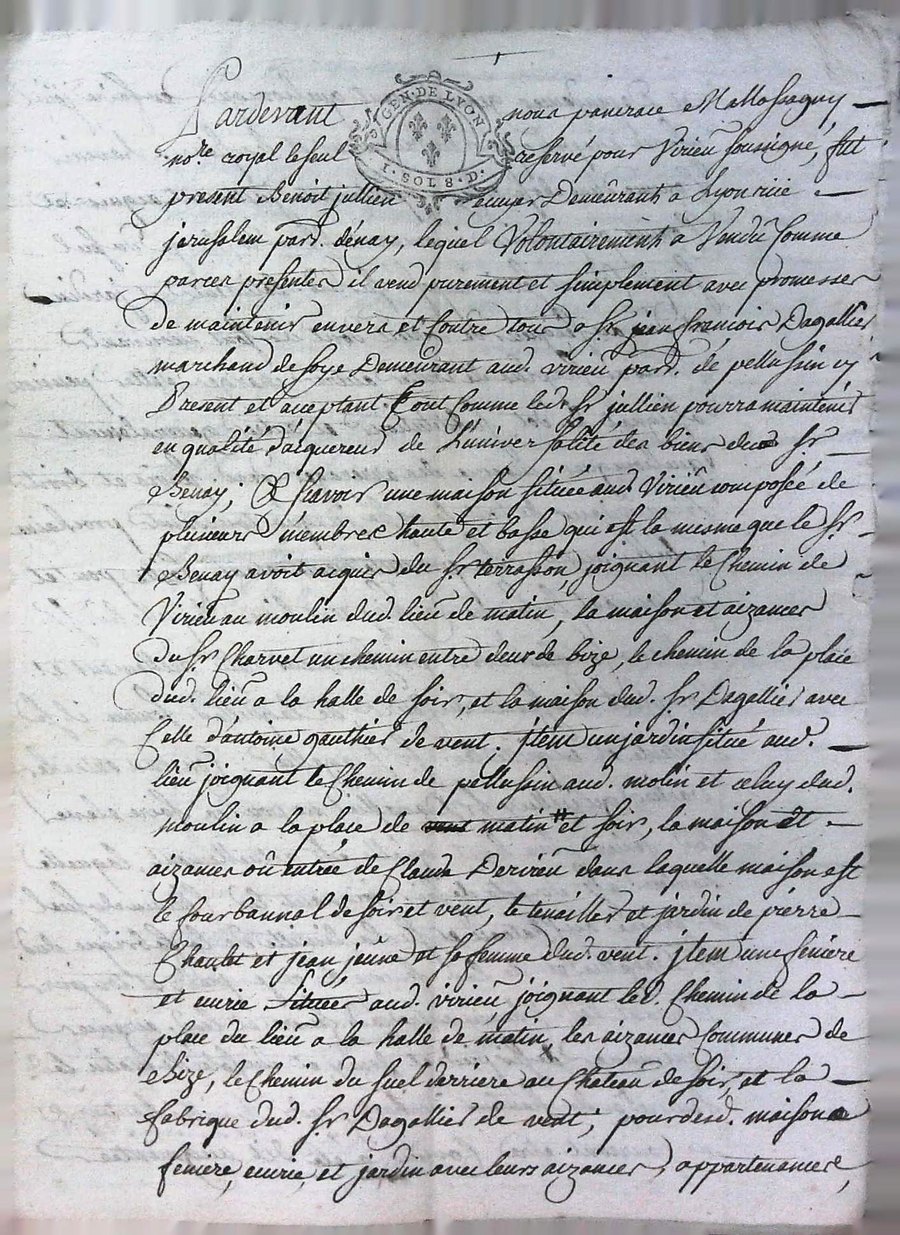 GEN·DE LYON
1·SOL 8·D·
Pardevant nous pancrace Mallassagny
no.re royal le seul reservé pour Virieu soussigné, fut
present Benoit jullien ecuyer Demeurant a Lyon rüe
jerusalem par.d. d'énay, lequel Volontairement a Vendu Comme
par ces presentes il vend purement et simplement avec promesses
de maintenir envers et Contre tous a Sr. jean françois Dagallier
marchand de soye Demeurant aud. virieu par.d. de pellussin cy
Present et aceptant. Tout Comme led. Sr. jullien pourra maintenir
en qualité d'acquereur de L'universalité des biens dud. Sr.
Benay; sçavoir une maison située aud. Virieu composée de
plusieurs membres haute et basse qui est la mesme que le Sr.
Benay avoit acquis du Sr. terrasson, joignant le Chemin de
Virieu au moulin dud. lieu de matin, la maison et aizances
du Sr. Charvet un chemin entre deux de bize, le chemin de la place
dud. lieu a la halle de soir, et la maison dud. Sr. Dagallier avec
Celle d'antoine gauthier de vent. jtem un jardin situé aud.
lieu joignant le Chemin de pellussin aud. molin et celuy dud.
moulin a la place de matin et soir, la maison et
aizances où entrée de Claude Deririeu dans laquelle maison est
le four bannal de soir et vent, le tenailler et jardin de pierre
Chaulet et jean jeune et sa femme dud. vent. jtem une feniere
et ecurie Situées aud. virieu, joignant led. Chemin de la
place du lieu a la halle de matin, les aizances Communes de
Bize, le Chemin du suel derriere au Chateau de soir, et la
fabrique dud. Sr. Dagallier de vent; pour desd. maison
feniere, ecurie, et jardin avec leurs aizances, appartenances,